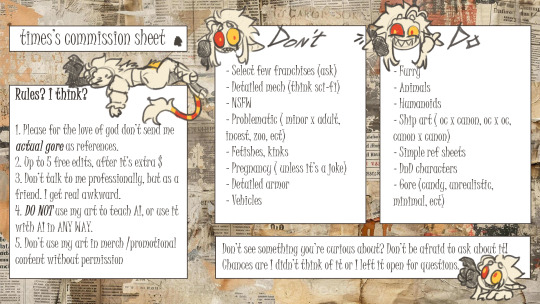 times's commission sheet
Rules? I think?
1. Please for the love of god don't send me
actual gore as references.
2. Up to 5 free edits, after it's extra $
3. Don't talk to me professionally, but as a
friend. I get real awkward.
4. DO NOT use my art to teach AI, or use it
with AI in ANY WAY.
5. Don't use my art in merch /promotional
content without permission
Don't
- Select few franchises (ask)
- Detailed mech (think sci-fi)
- NSFW
- Problematic ( minor x adult,
incest, zoo, ect)
- Fetishes, kinks
- Pregnancy ( unless it's a joke)
- Detailed armor
- Vehicles
Do
- Furry
- Animals
- Humanoids
- Ship art ( oc x canon, oc x oc,
canon x canon)
- Simple ref sheets
- DnD characters
- Gore (candy, unrealistic,
minimal, ect)
Don't see something you're curious about? Don't be afraid to ask about it!
Chances are I didn't think of it or I left it open for questions.